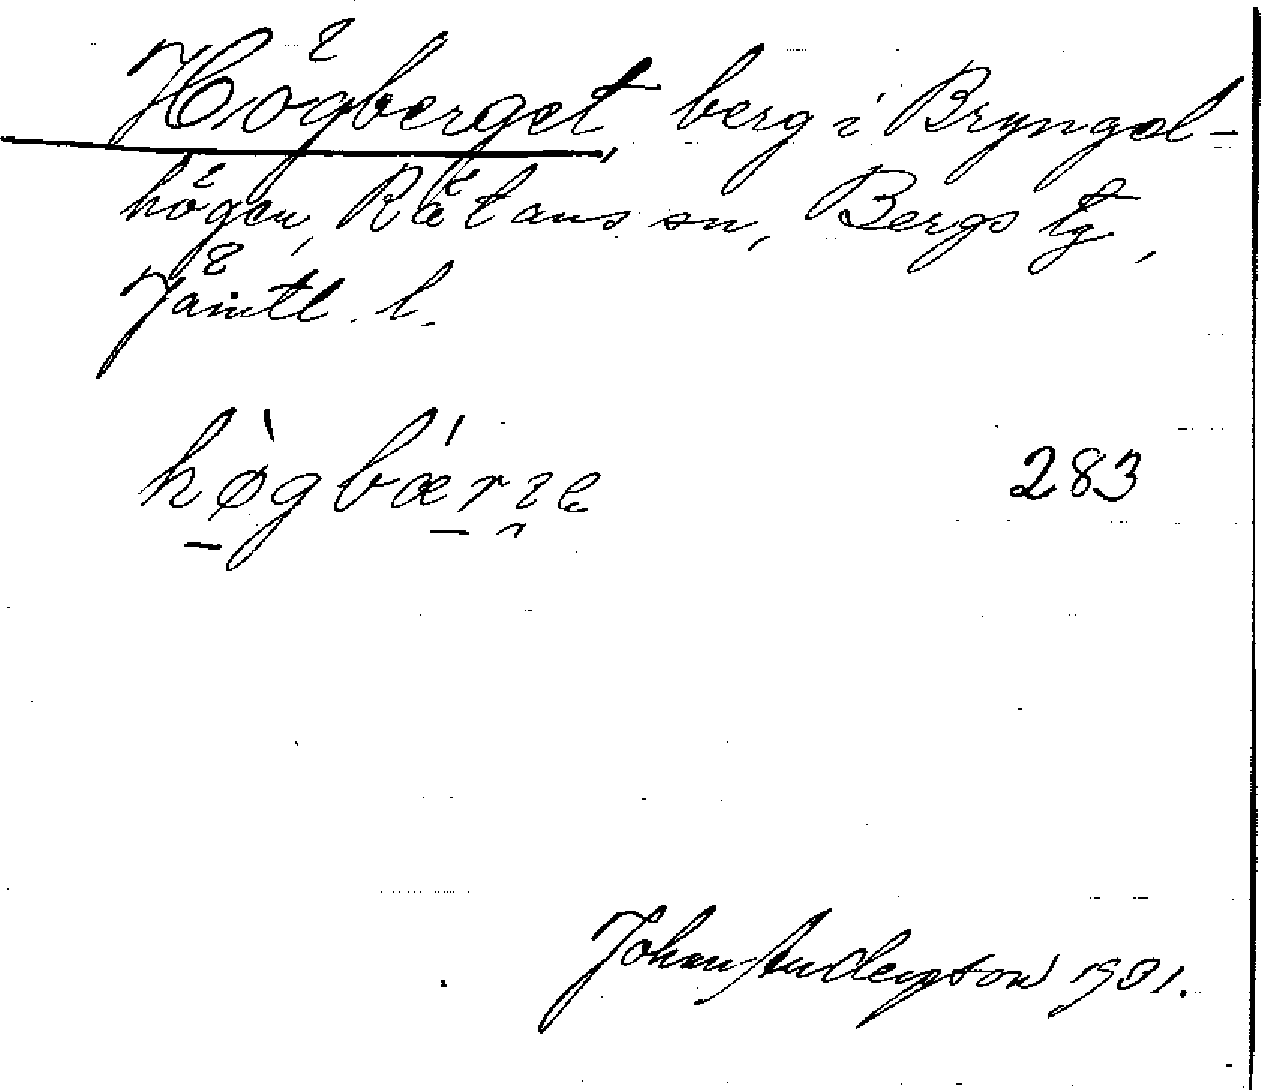 Högberget, berg i Bryngel-
högen, Rätans sn, Bergs tg,
Jämtl. l.
hø̱̀gbǽṟ
283
Johan Andersson 1931.